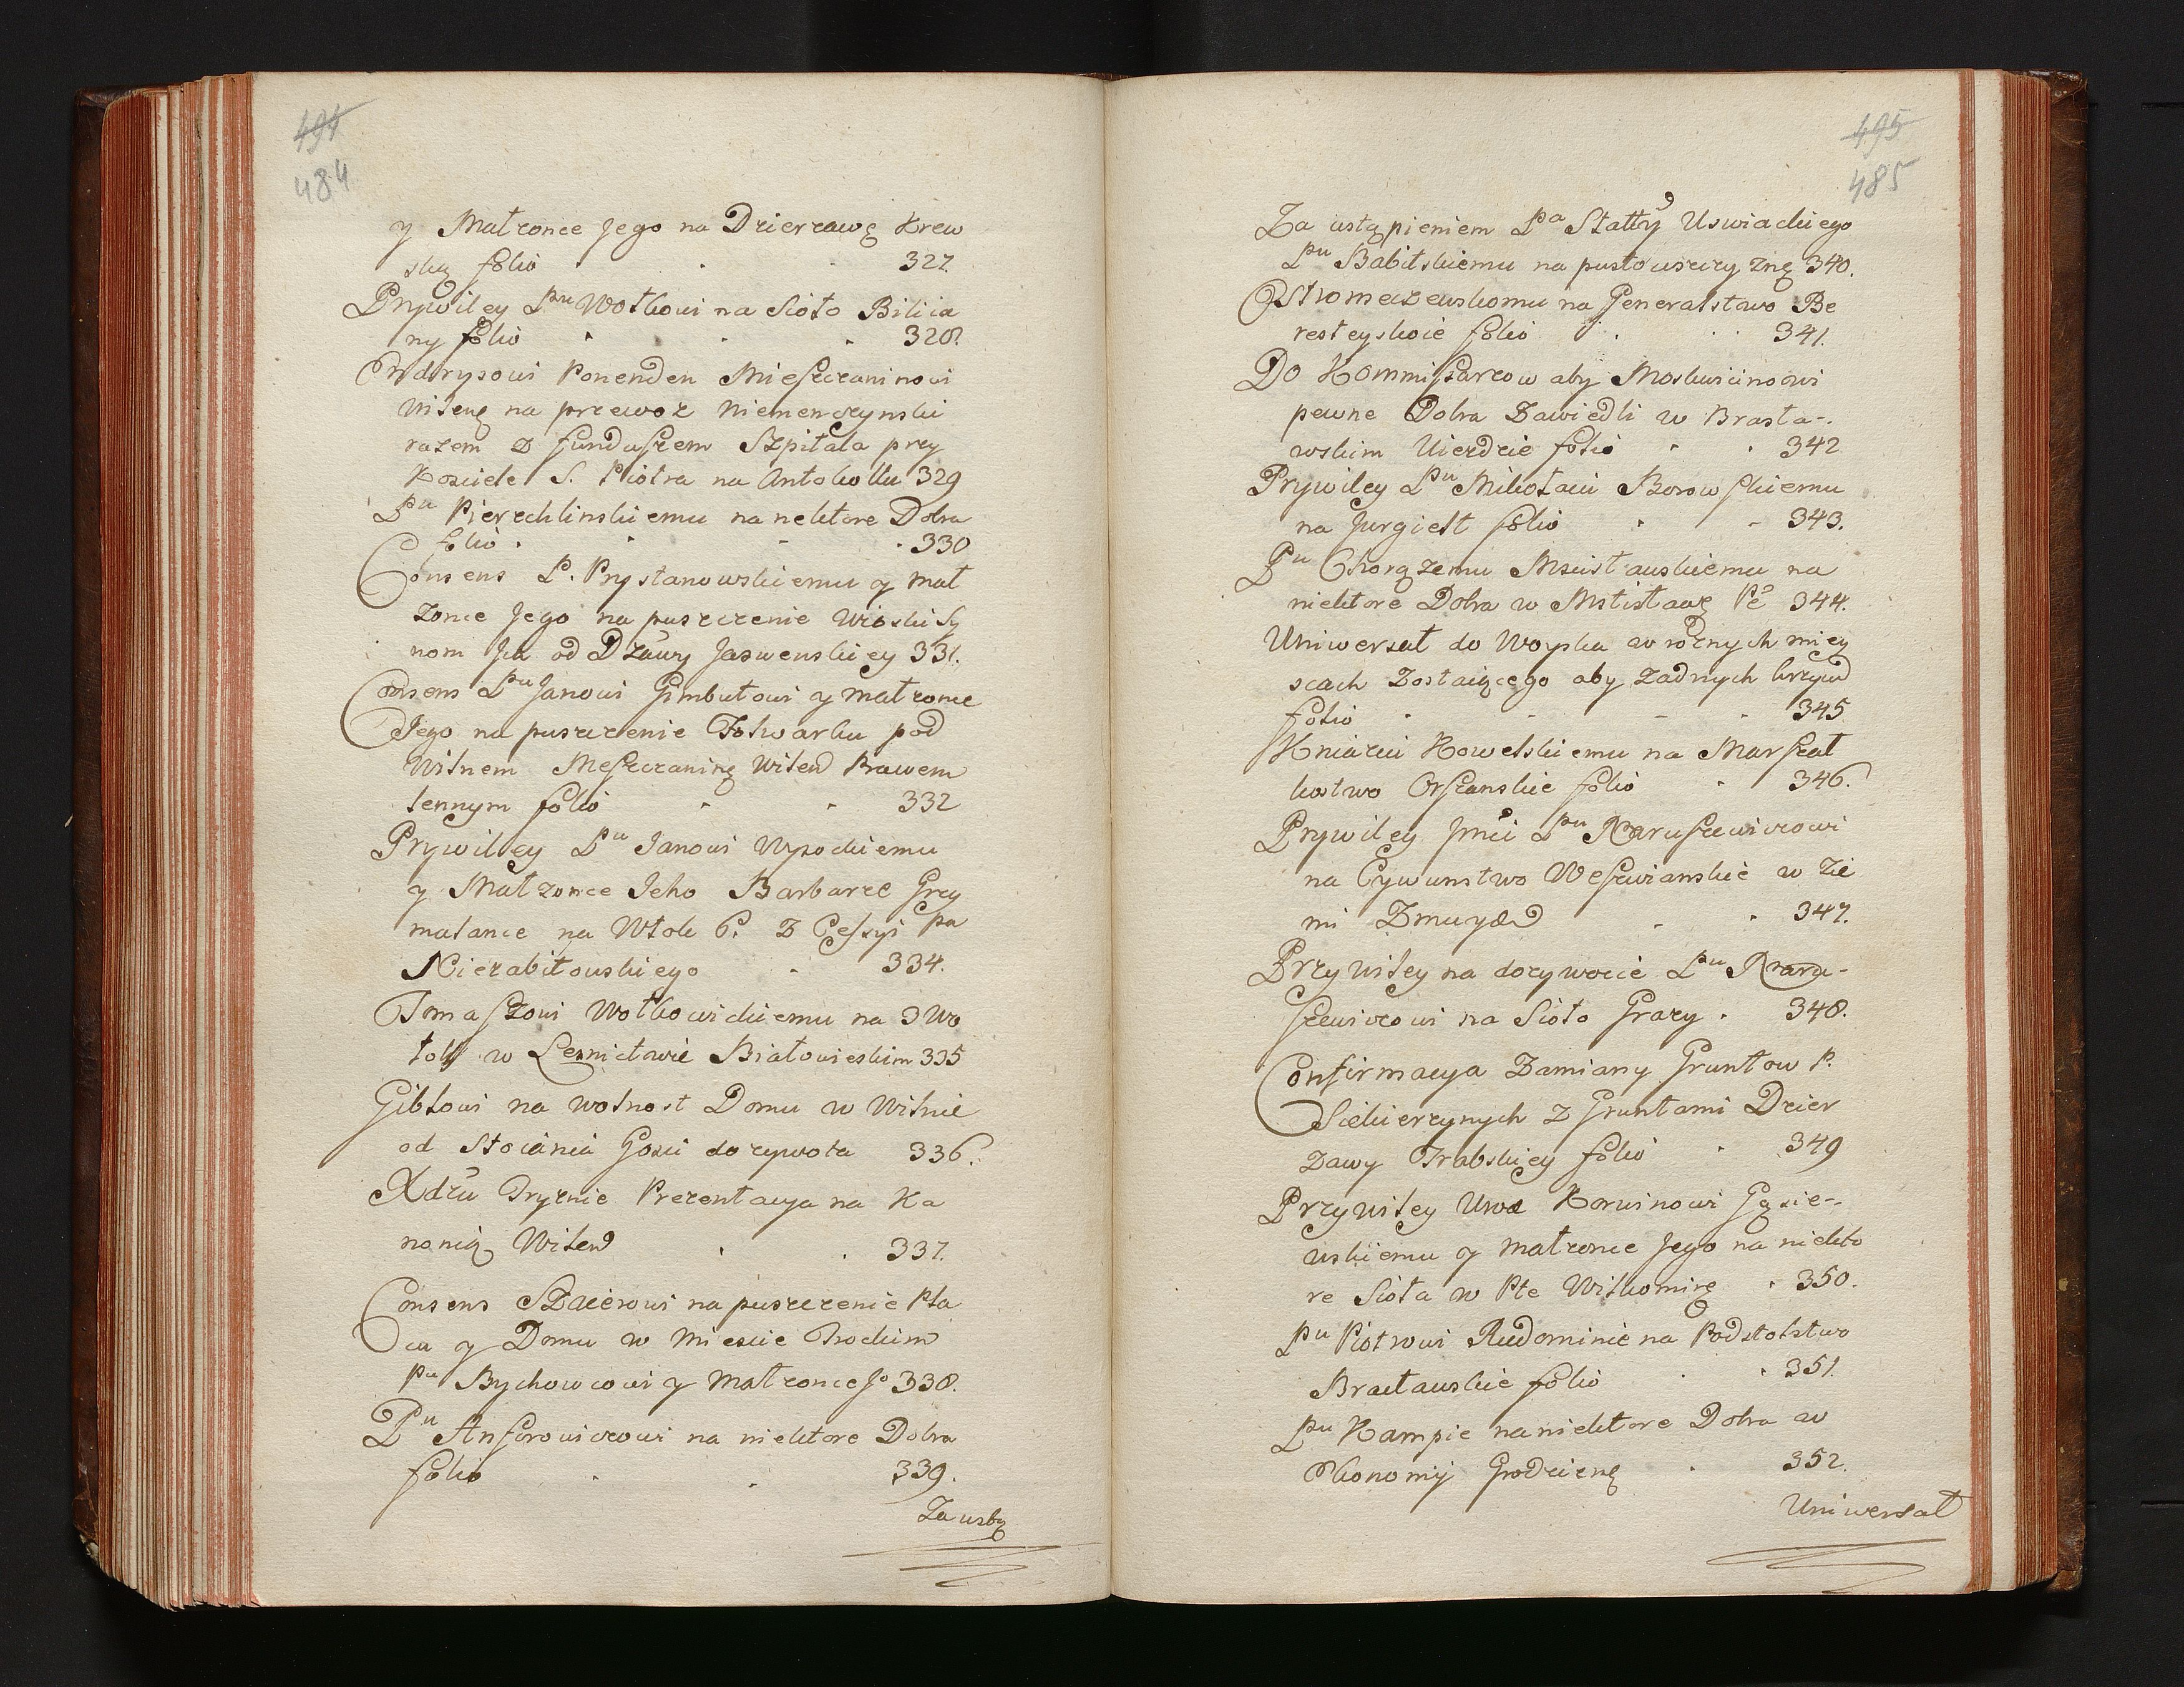 494
484
y Małzonce Jego na Dzierzawę Krew
ską folio 327.
Prywiley Pnu Wołkowi na Sioło Bilicia
ny folio 328.
Endrysowi Ponenden Mieszczaninowi
Wileng na przewoz Niemenczynski
razem z funduszem Szpitala przy
Kosciele S. Piotra na Antokollu 329
Pnu Pierechlinskiemu na nektore Dobra
folio 330
Consens P. Prystanowskiemu y mał
zonce Jego na puszczenie Wioski Sy
nom Jch od Dzawy Jaswenskiey 331.
Consens Pnu Janowi Gimbutowi y małzonce
Jego na puszczenie Folwarku pod
Wilnem Meszczaninę Wileń Prawem
lennym folio 332
Prywiley Pnu Janowi Wysockiemu
y Małzonce Jeho Barbarze Grzy
małance na Włok 6. Z Cessyi Pa
Niezabitowskiego 334.
Tomaszowi Wołkowickiemu na 3 Wo
tok w Lesnictwie Białowieskim 335
Giblowi na wolnosc Domu w Wilnie
od Stoiania Gosci dozywota 336.
Xdzu Tryznie Prezentacya na Ka
nonię Wileń 337.
Consens Szacierowi na puszczenie Pla
cu y Domu w Miescie Trockim
Pu Bychowcowi y Małzonce Jo 338.
Pu Anforowiczowi na niektore Dobra
folio 339.
Za ustą
495
485
Za ustąpieniem Pa Statty Uswiackiego
Pnu Babilskiemu na pustowszczyznę 340.
Ostromeczewskomu na Generalstwo Be
resteyskoie folio 341.
Do Kommissarzow aby Moskwicinowi
pewne Dobra Zawiedli w Brasła-
wskim Uiezdzie folio 342
Prywiley Pnu Mikołaiu Borowskiemu
na Jurgielt folio 343.
Pu Chorązemu Mscisławskiemu na
niektore Dobra w Mstisławę Pe 344.
Uniwersał do Woyska w roznych miey
scach Zostaiącego aby Zadnych krzywd
folio 345
Kniaziu Kowelskiemu na Marszał
kostwo Orszanskie folio 346.
Prywiley Jmci Pnu Naruszewiczowi
na Cywunstwo Weszwianskie w Zie
mi Zmuyd 347.
Przywiley na dozywocie Pnu Naru-
szewiczowi na Sioło Grazy 348.
Confirmacya Zamiany Gruntow P.
Siekierzynych z Gruntami Dzier
zawy Trabskiey folio 349
Przywiley Urod Korwinowi Gąsie-
wskiemu y małzonce Jego na niekto
re Sioła w Pte Wiłkomirę 350.
Pnu Piotrowi Rudominie na Podstolstwo
Bracławskie folio 351.
Pnu Kampie na niektore Dobra w
Ekonomij Grodzienę 352.
Uniwersał